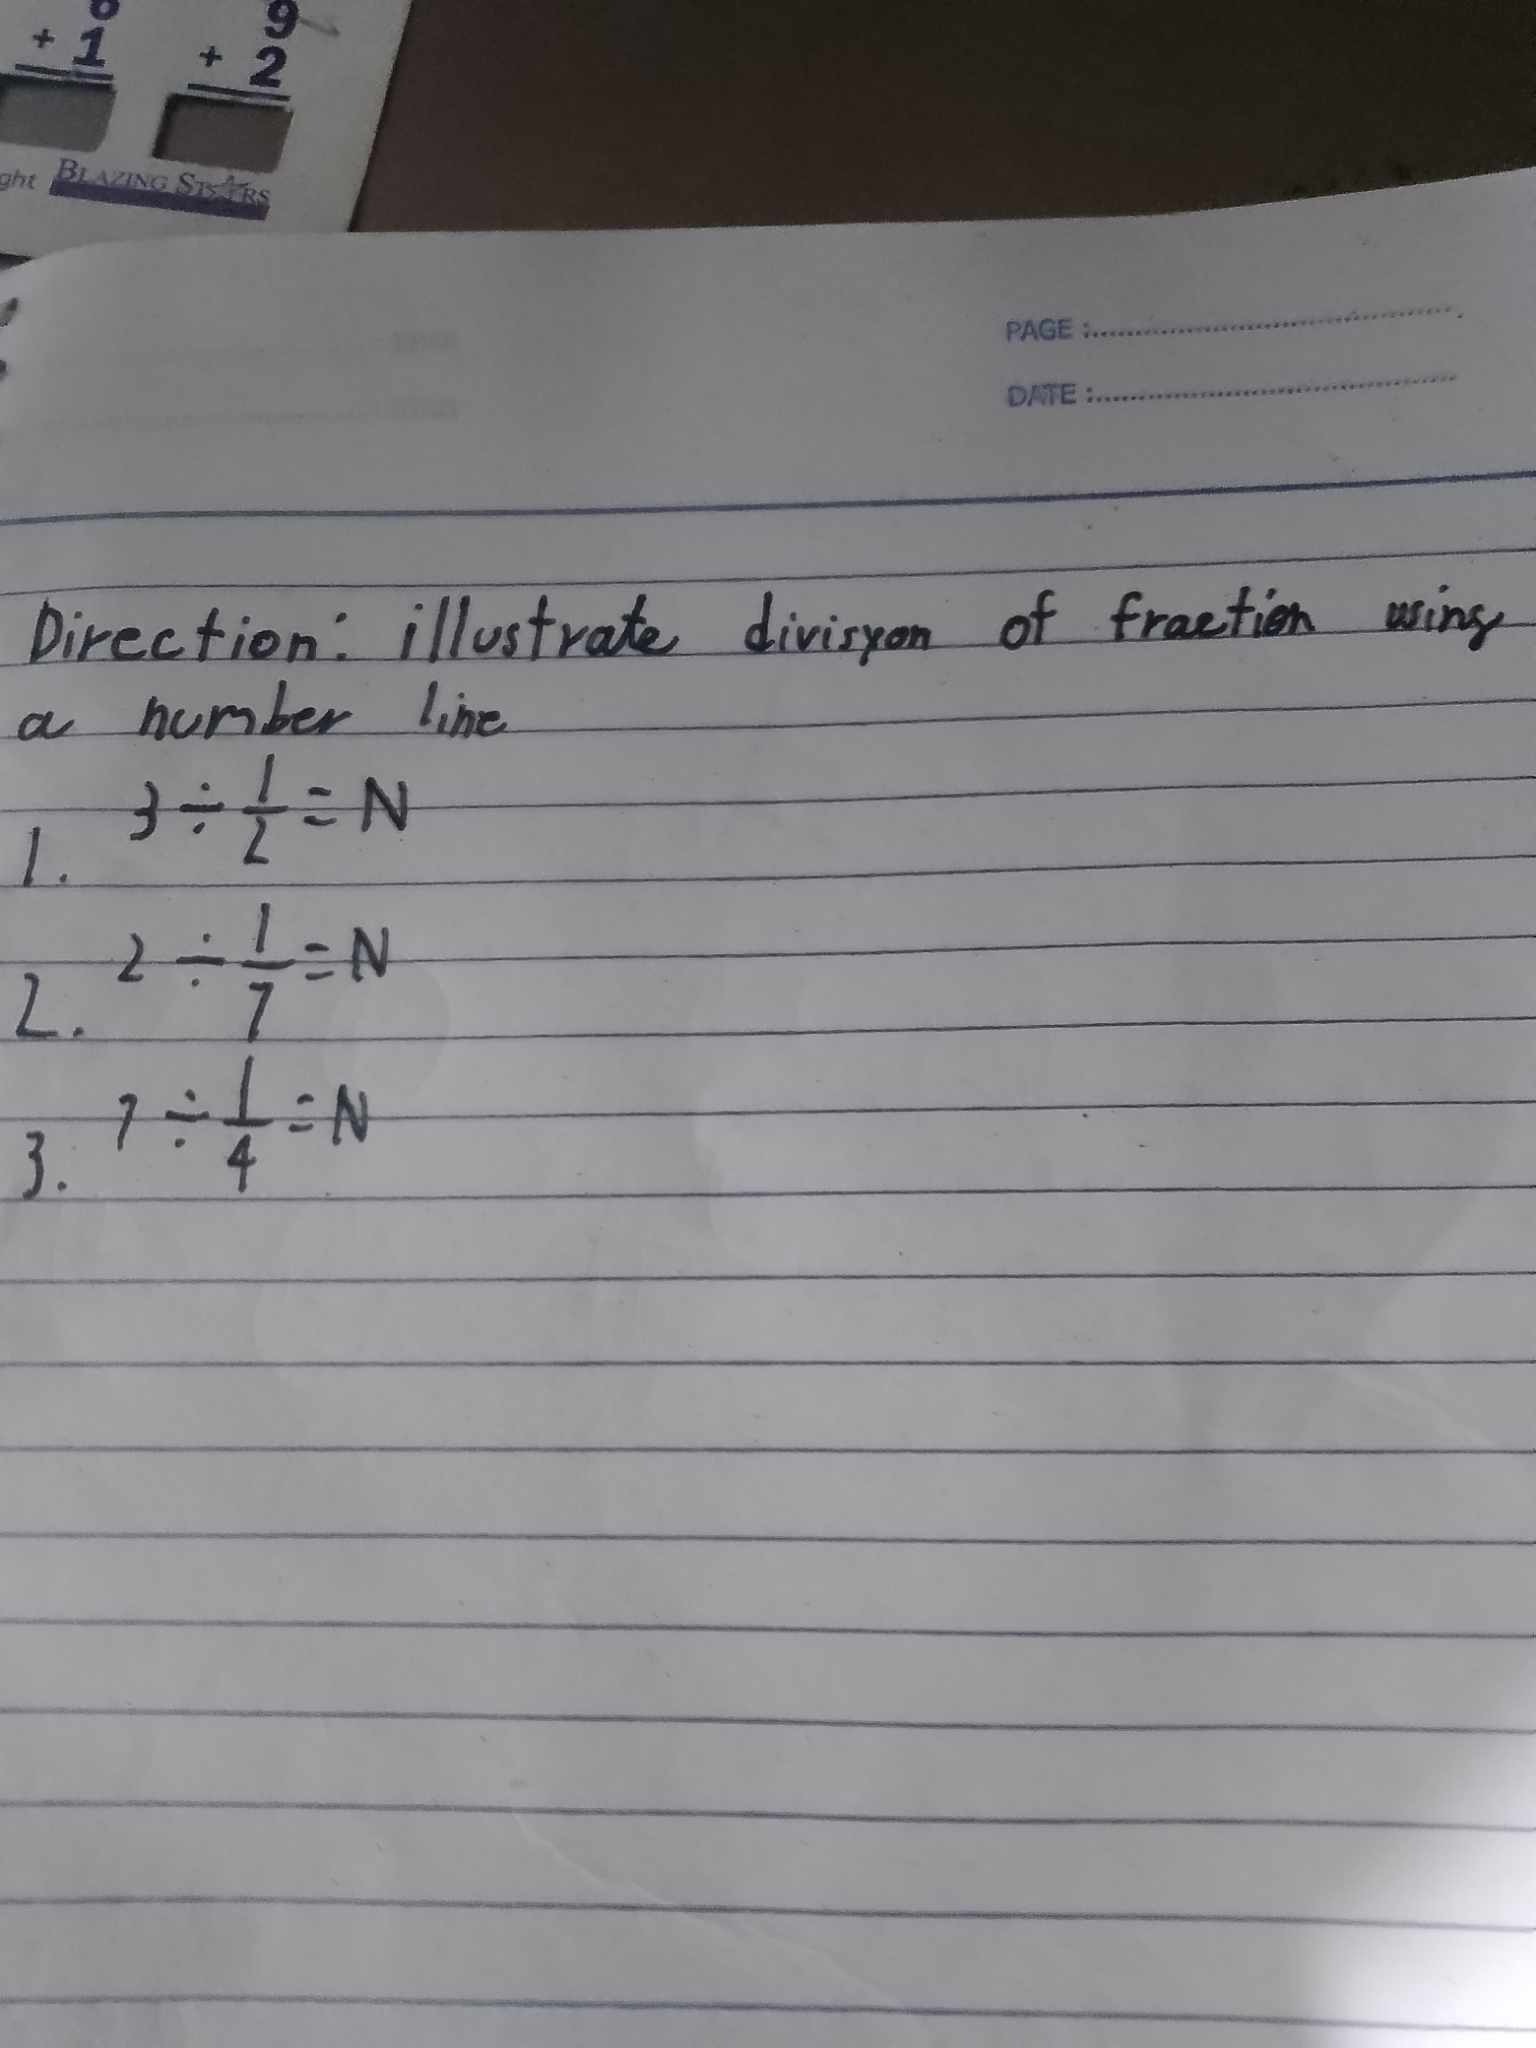 + 1
9
+ 2
ght BLAZING STARS
PAGE :
DATE :
Direction: illustrate divisyon of fraction using
a number line
1. 3 ÷ 1/2 = N
2. 2 ÷ 1/7 = N
3. 7 ÷ 1/4 = N